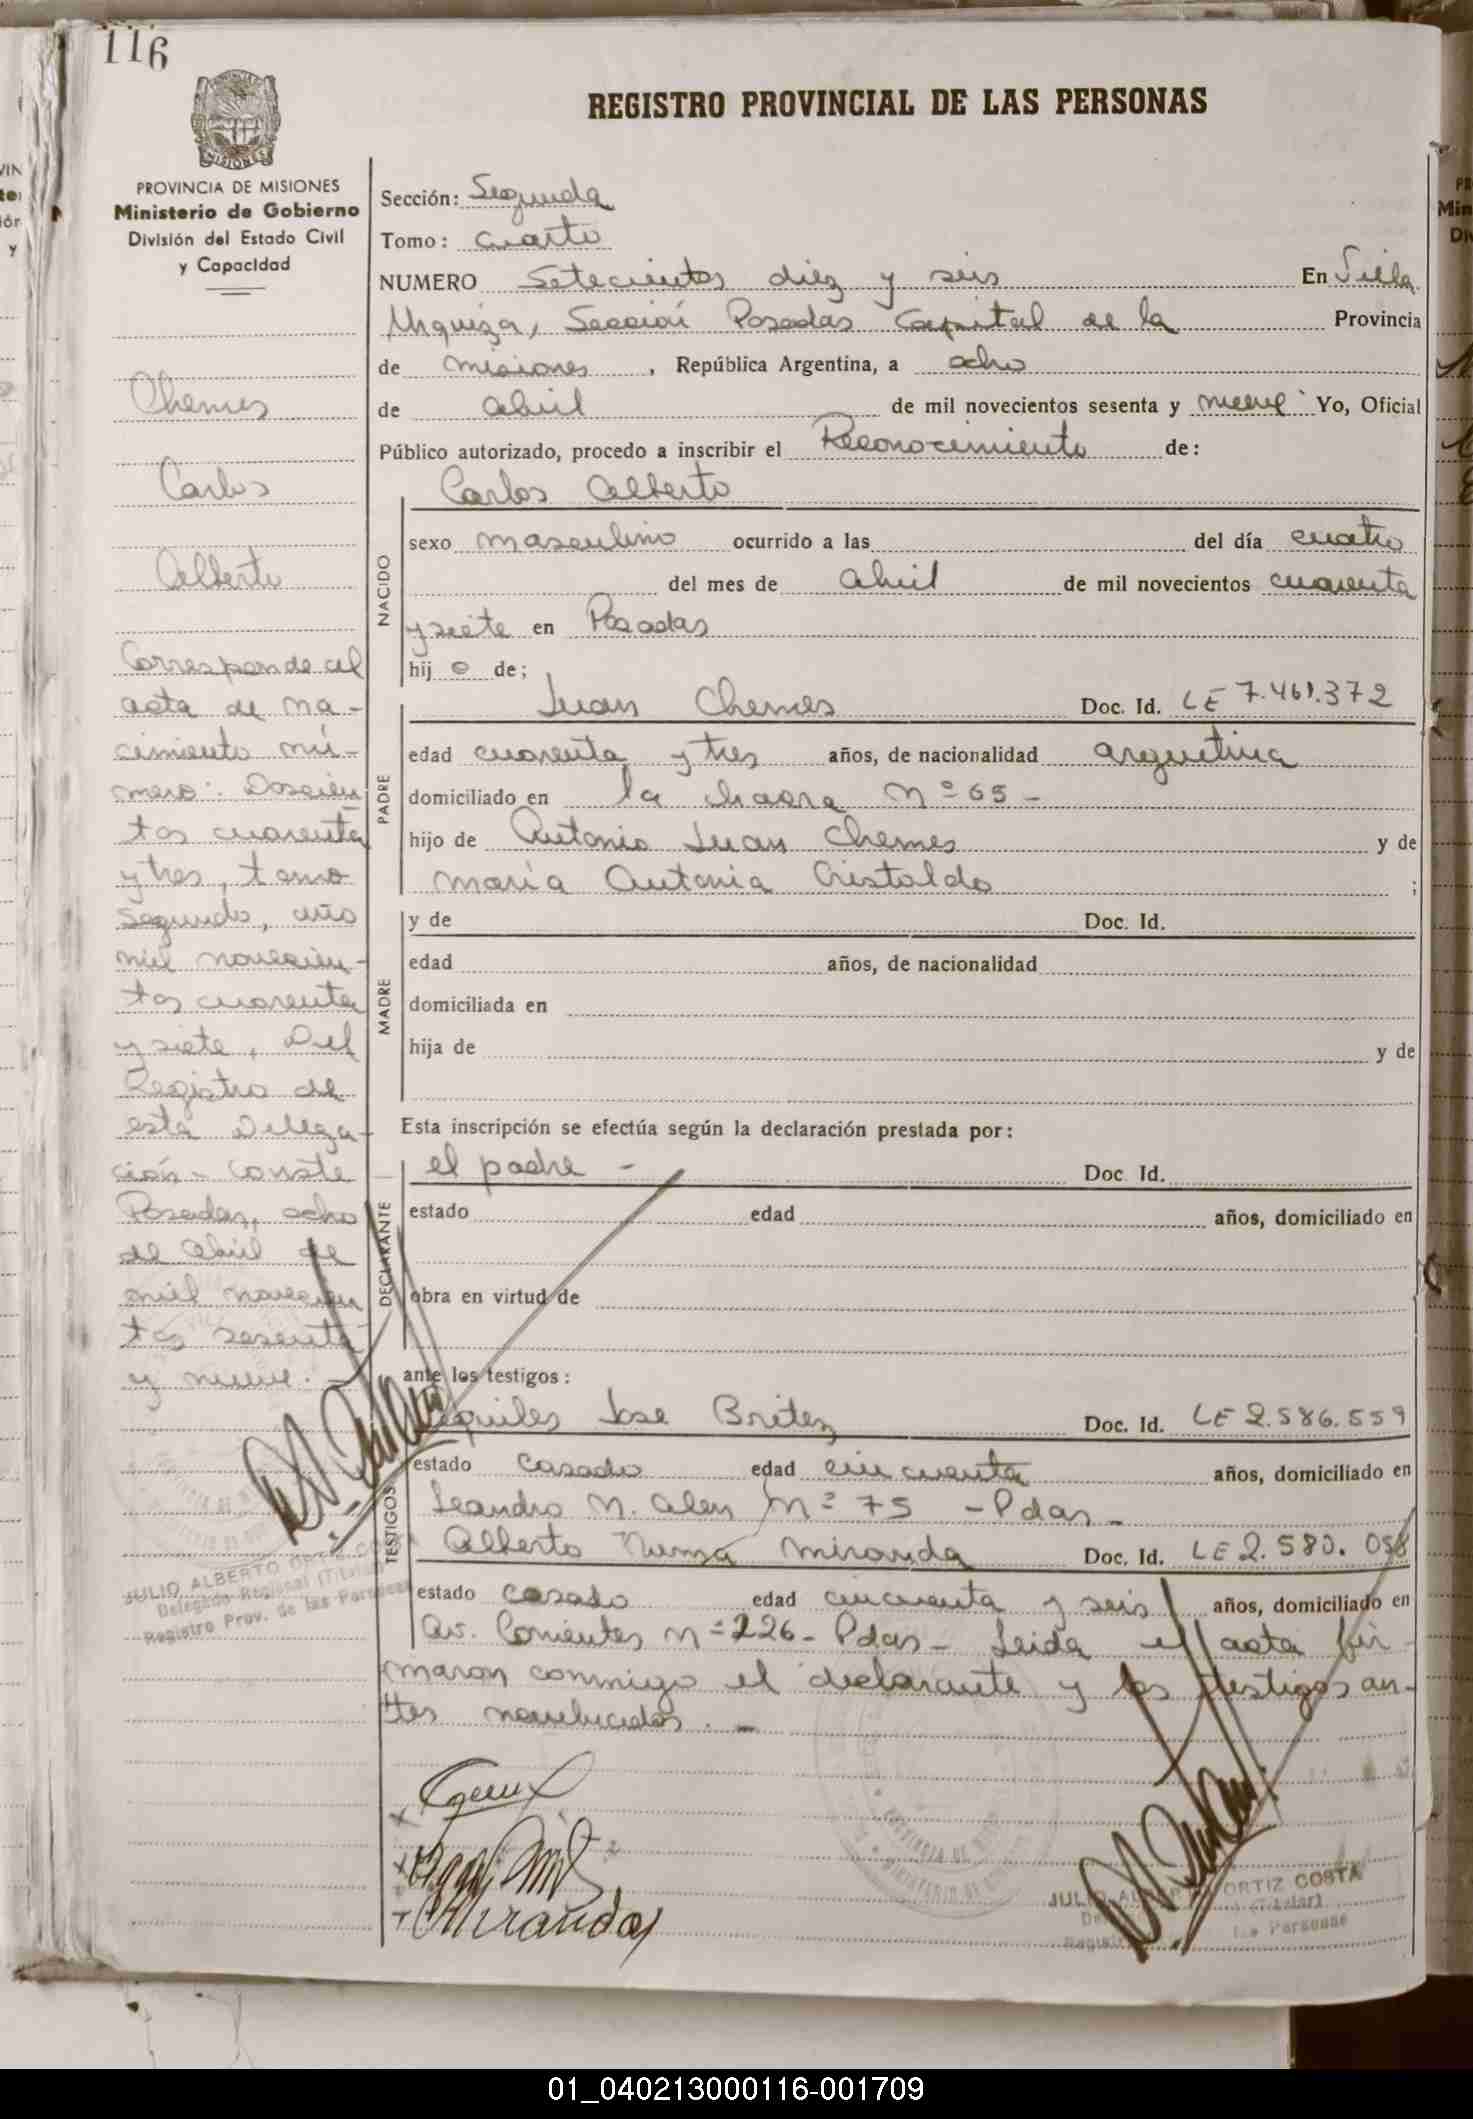 116
REGISTRO PROVINCIAL DE LAS PERSONAS
PROVINCIA DE MISIONES
Ministerio de Gobierno
División del Estado Civil
y Capacidad
Chemes
Carlos
Alberto
Corresponde al
acta de na-
cimiento nú-
mero: Doscien
tos cuarenta
y tres, tomo
segundo, año
mil novecien-
tos cuarenta
y siete, Del
Registro de
esta Delega-
ción - Conste
Posadas, ocho
de abril de
mil novecien
tos sesenta
y nueve. -
JULIO ALBERTO
Delegado Regional (Titular)
Registro Prov. de las Personas
Sección: Segunda
Tomo: Cuarto
NUMERO Setecientos diez y seis En Villa
Urquiza, Sección Posadas Capital de la Provincia
de Misiones, República Argentina, a ocho
de abril de mil novecientos sesenta y nueve Yo, Oficial
Público autorizado, procedo a inscribir el Reconocimiento de:
Carlos Alberto
NACIDO
sexo masculino ocurrido a las del día cuatro
del mes de abril de mil novecientos cuarenta
y siete en Posadas
hijo de;
PADRE
Juan Chemes Doc. Id. LE 7.461.372
edad cuarenta y tres años, de nacionalidad argentina
domiciliado en la chacra Nº 65 -
hijo de Antonio Juan Chemes y de
María Antonia Cristaldo ;
MADRE
y de Doc. Id.
edad años, de nacionalidad
domiciliada en
hija de y de
Esta inscripción se efectúa según la declaración prestada por:
DECLARANTE
el padre - Doc. Id.
estado edad años, domiciliado en
obra en virtud de
ante los testigos:
TESTIGOS
Aquiles Jose Britez Doc. Id. LE 2.586.559
estado casado edad cincuenta años, domiciliado en
Leandro N. Alem Nº 75 - Pdas -
Alberto Numa Miranda Doc. Id. LE 2.580.058
estado casado edad cincuenta y seis años, domiciliado en
Av. Corrientes Nº 226 - Pdas - Leida el acta fir-
maron conmigo el declarante y los testigos an-
tes nombrados. -
Miranda
JULIO ALBERTO ORTIZ COSTA
(Titular)
las Personas
01_040213000116-001709